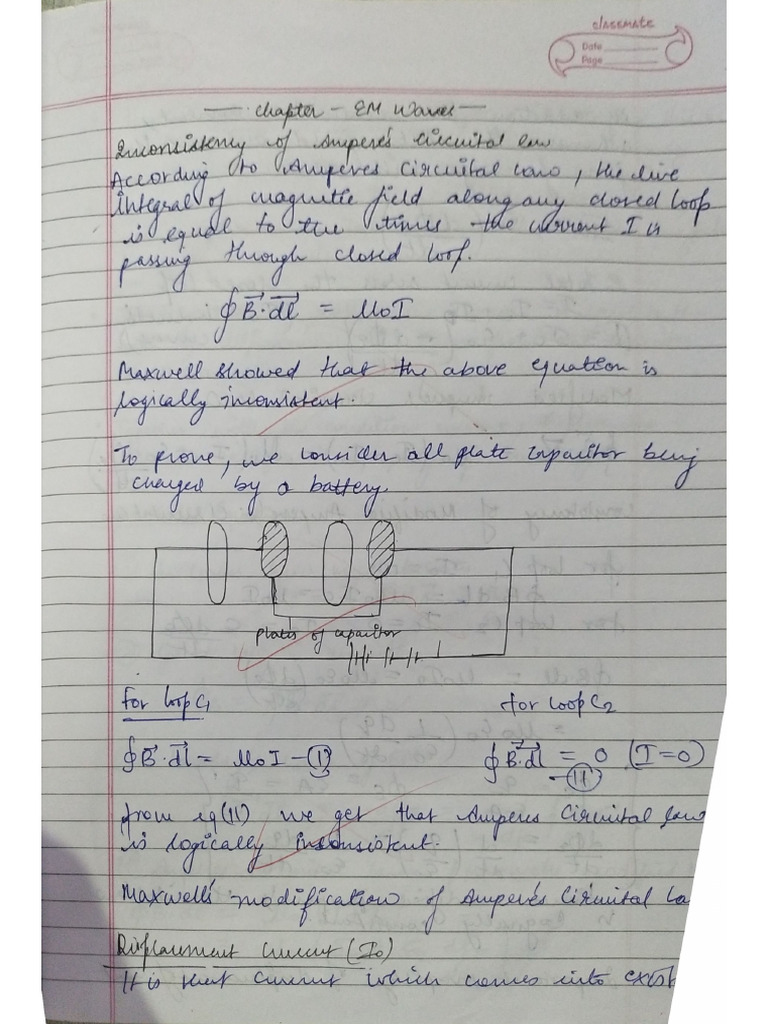 classmate
Date
Page
Chapter - EM Waves
Inconsistency of Ampere's Circuital law
According to Amperes Circuital law, the line
integral of magnetic field along any closed loop
is equal to the times the current I is
passing through closed loop.
∮B⃗·dl⃗ = MoI
Maxwell showed that the above equation is
logically inconsistent.
To prove, we consider all plate capacitor being
charged by a battery.
plates of capacitor
For loop C1
for loop C2
∮B⃗·dl⃗ = MoI - (I)
∮B⃗·dl⃗ = 0 (I=0)
- (II)
from eq(II) we get that Amperes Circuital law
is logically inconsistent.
Maxwell's modification of Ampere's Circuital La
Displacement Current (ID)
It is that current which comes into exist